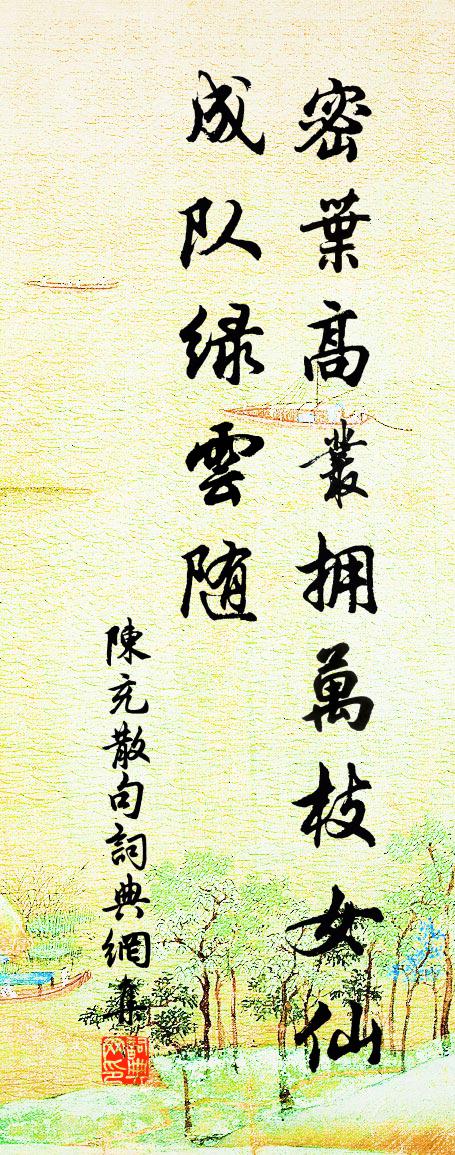 密葉高叢拥萬枝女仙
成队绿雲随
陳充散句詞典網集